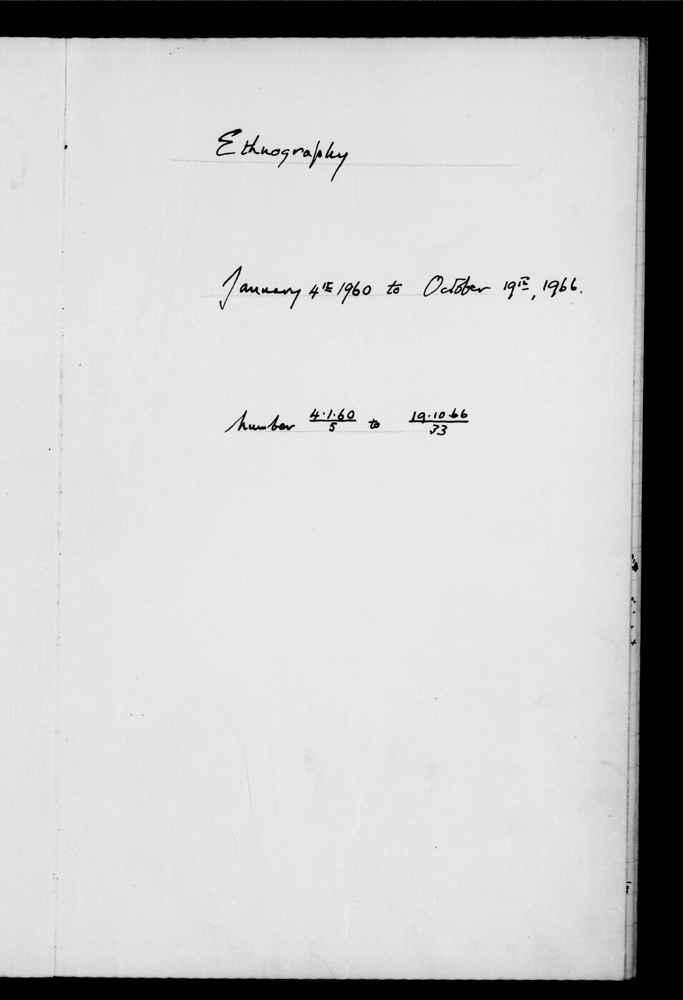 Ethnography
January 4th 1960 to October 19th, 1966.
Number 4.1.60/5 to 19.10.66/33